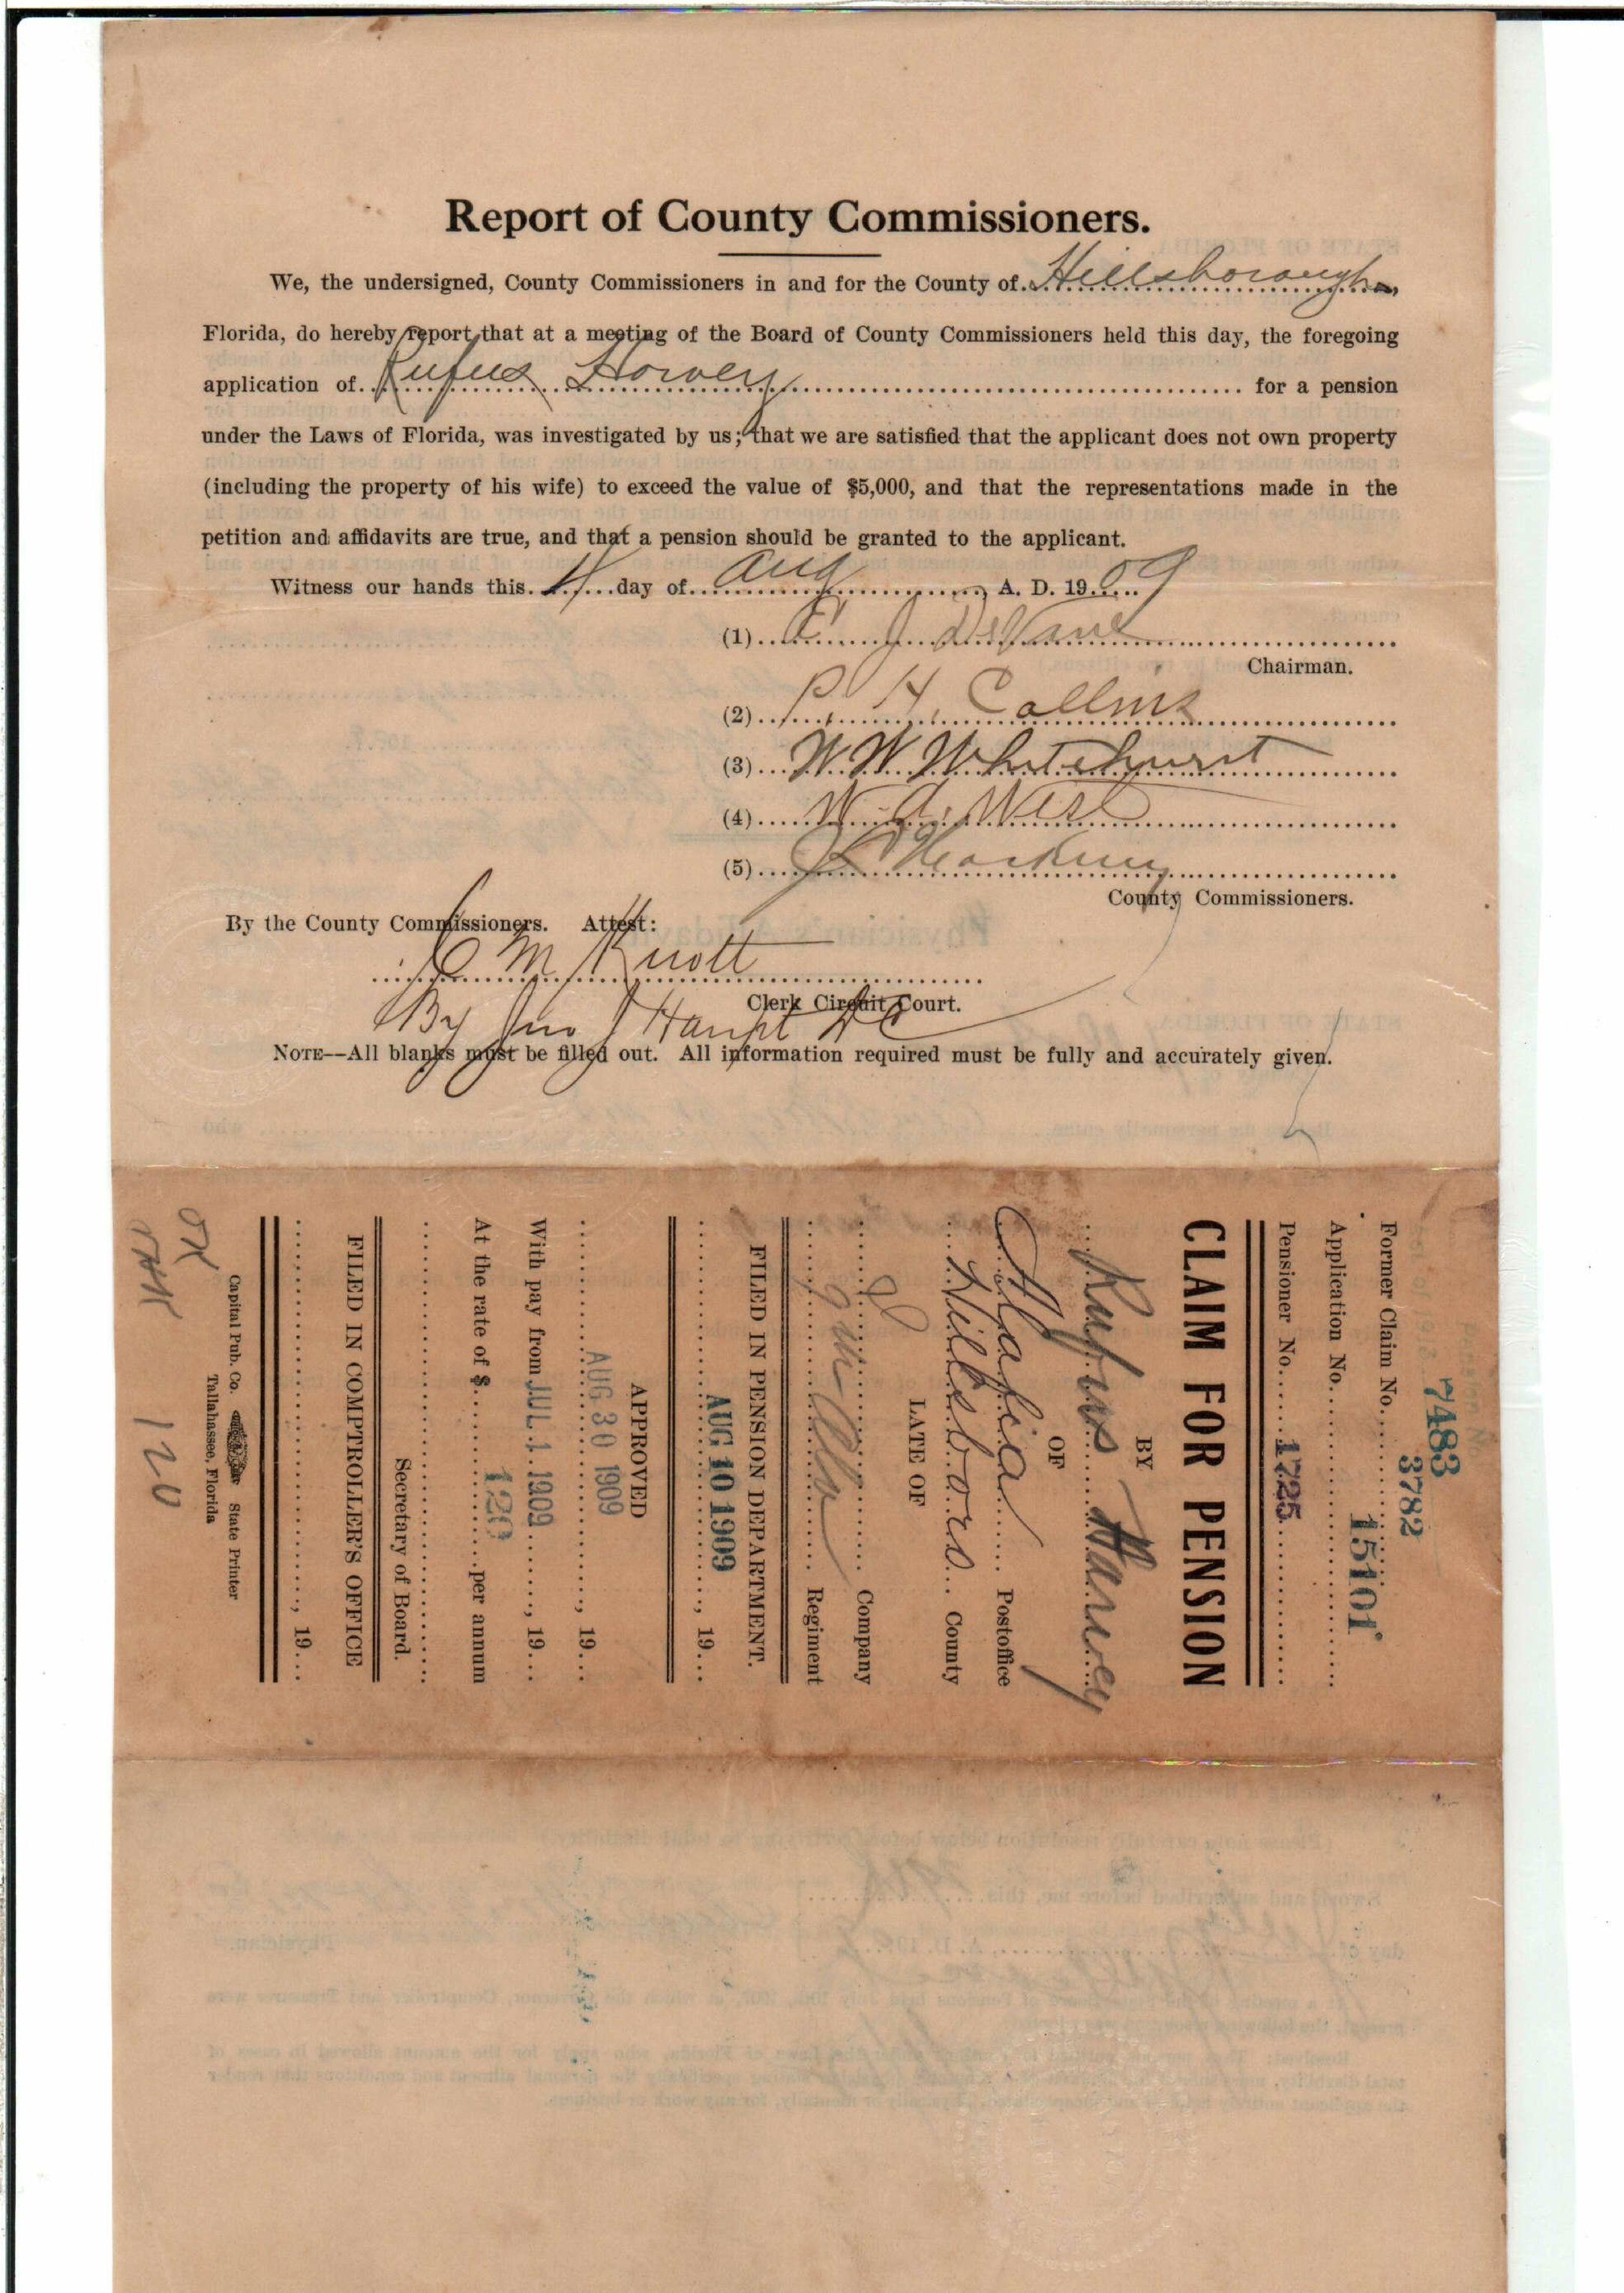 Report of County Commissioners.
We, the undersigned, County Commissioners in and for the County of Hillsborough,
Florida, do hereby report that at a meeting of the Board of County Commissioners held this day, the foregoing
application of Rufus Harvey for a pension
under the Laws of Florida, was investigated by us; that we are satisfied that the applicant does not own property
(including the property of his wife) to exceed the value of $5,000, and that the representations made in the
petition and affidavits are true, and that a pension should be granted to the applicant.
Witness our hands this 4 day of Aug, A. D. 1909
(1) J DeVane
Chairman.
(2) P. H. Collins
(3) W W Whitehurst
(4) W. A. West
(5)
County Commissioners.
By the County Commissioners. Attest:
C M Knott
Clerk Circuit Court.
By Jno J Haupt DC
NOTE--All blanks must be filled out. All information required must be fully and accurately given.
7483
3782
Former Claim No.
15101
Application No.
Pensioner No. 1725
CLAIM FOR PENSION
BY
Rufus Harvey
OF
Alafia Postoffice
Hillsboro County
LATE OF
Company
9 Regiment
FILED IN PENSION DEPARTMENT.
AUG 10 1909, 19
APPROVED
AUG 30 1909, 19
With pay from JUL 1 1909, 19
At the rate of $ 120 per annum
Secretary of Board.
FILED IN COMPTROLLER'S OFFICE
, 19
Capital Pub. Co. State Printer
Tallahassee, Florida
OK
120